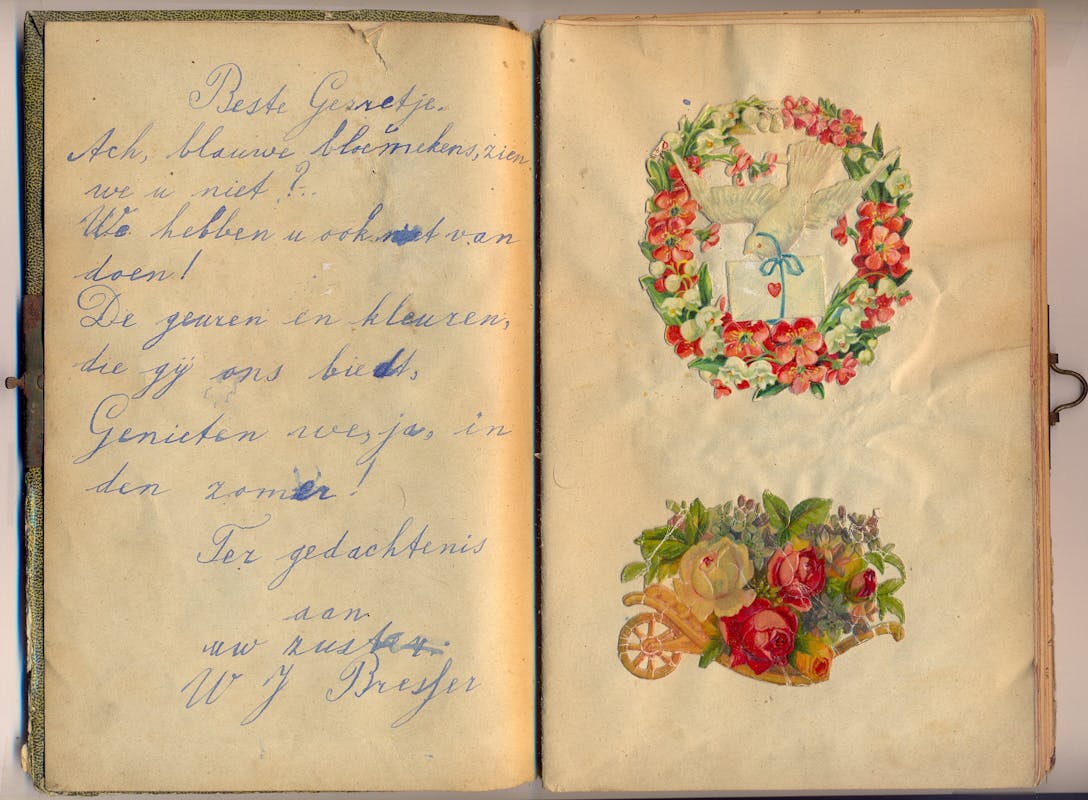 Beste Gerretje.
Ach, blauwe bloemekens, zien
we u niet?..
We hebben u ook niet van
doen!
De geuren en kleuren,
die gij ons biedt,
Genieten we, ja, in
den zomer!
Ter gedachtenis
aan
uw zuster.
W J Bresser